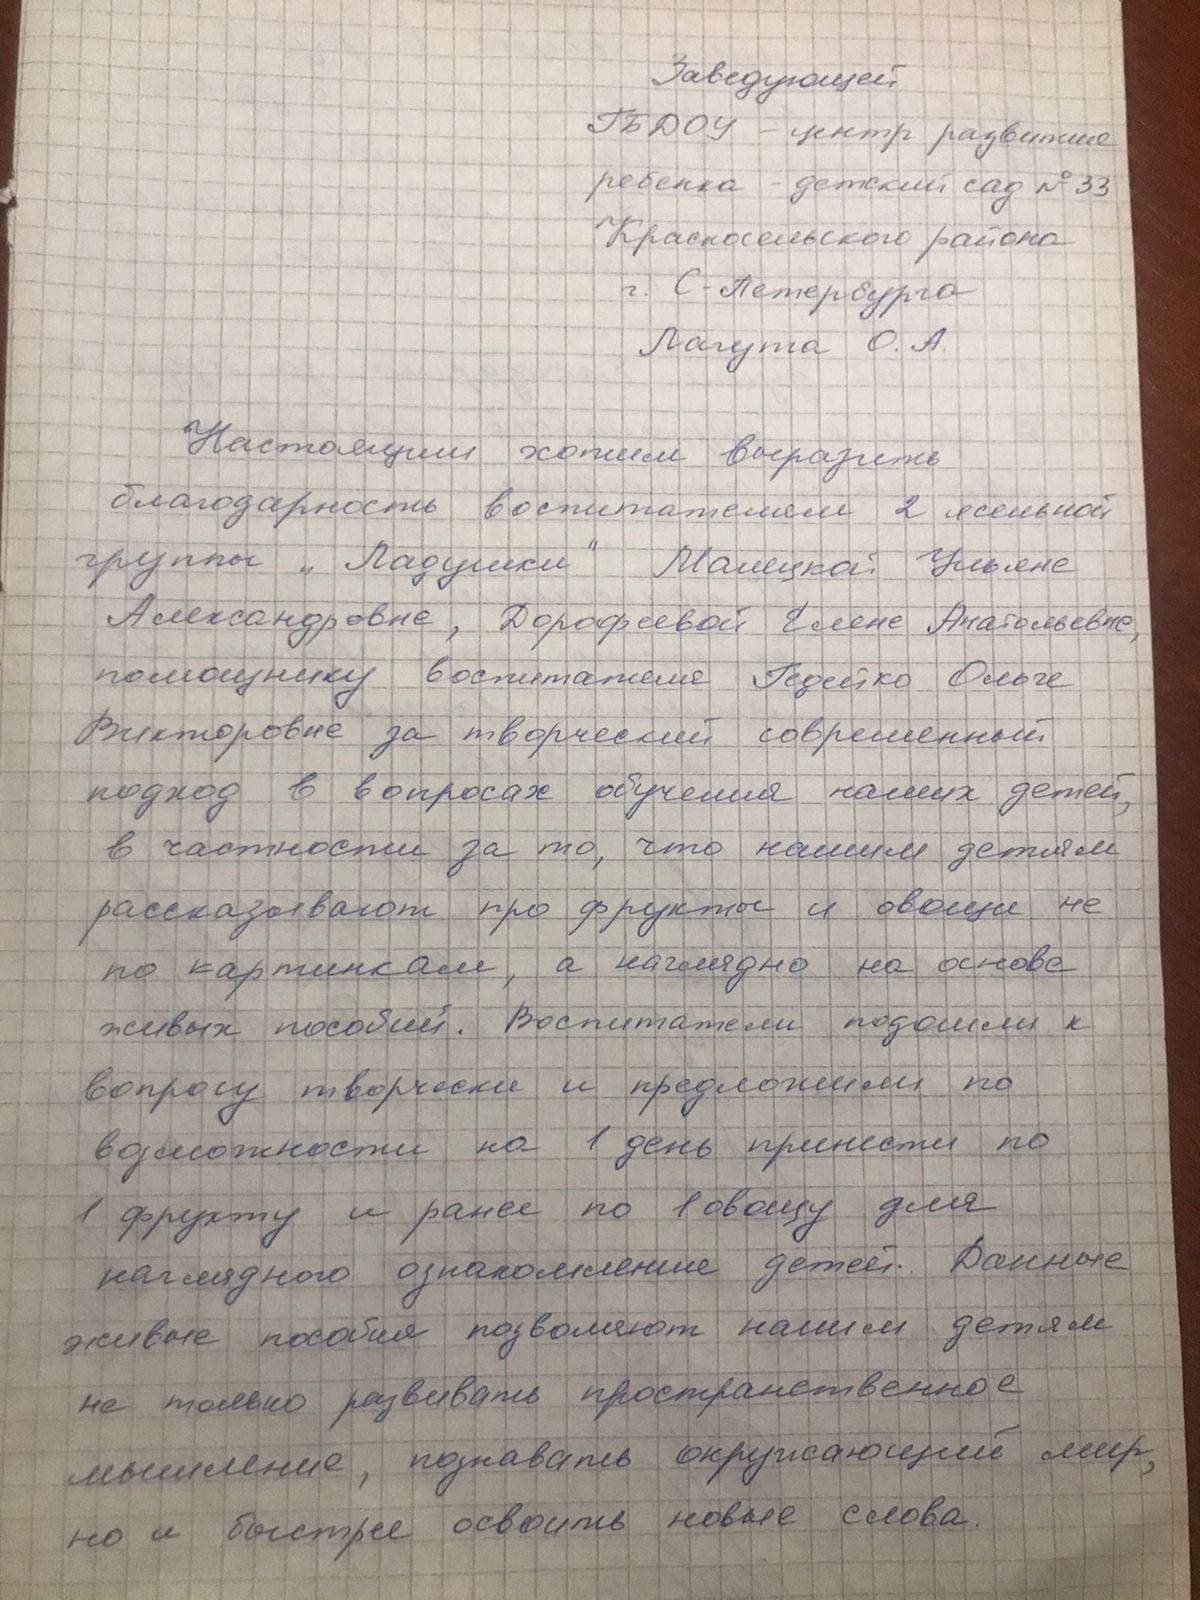 Заведующей
ГБДОУ - центр развития
ребенка - детский сад № 33
Красносельского района
г. С-Петербурга
Лагута О. А.
Настоящим хотим выразить
благодарность воспитателям 2 ясельной
группы „Ладушки" Малецкой Ульяне
Александровне, Дорофеевой Елене Анатольевне,
помощнику воспитателя Гедейко Ольге
Викторовне за творческий современный
подход в вопросах обучения наших детей,
в частности за то, что нашим детям
рассказывают про фрукты и овощи не
по картинкам, а наглядно на основе
живых пособий. Воспитатели подошли к
вопросу творчески и предложили по
возможности на 1 день принести по
1 фрукту и ранее по 1 овощу для
наглядного ознакомления детей. Данные
живые пособия позволяют нашим детям
не только развивать пространственное
мышление, познавать окружающий мир,
но и быстрее освоить новые слова.